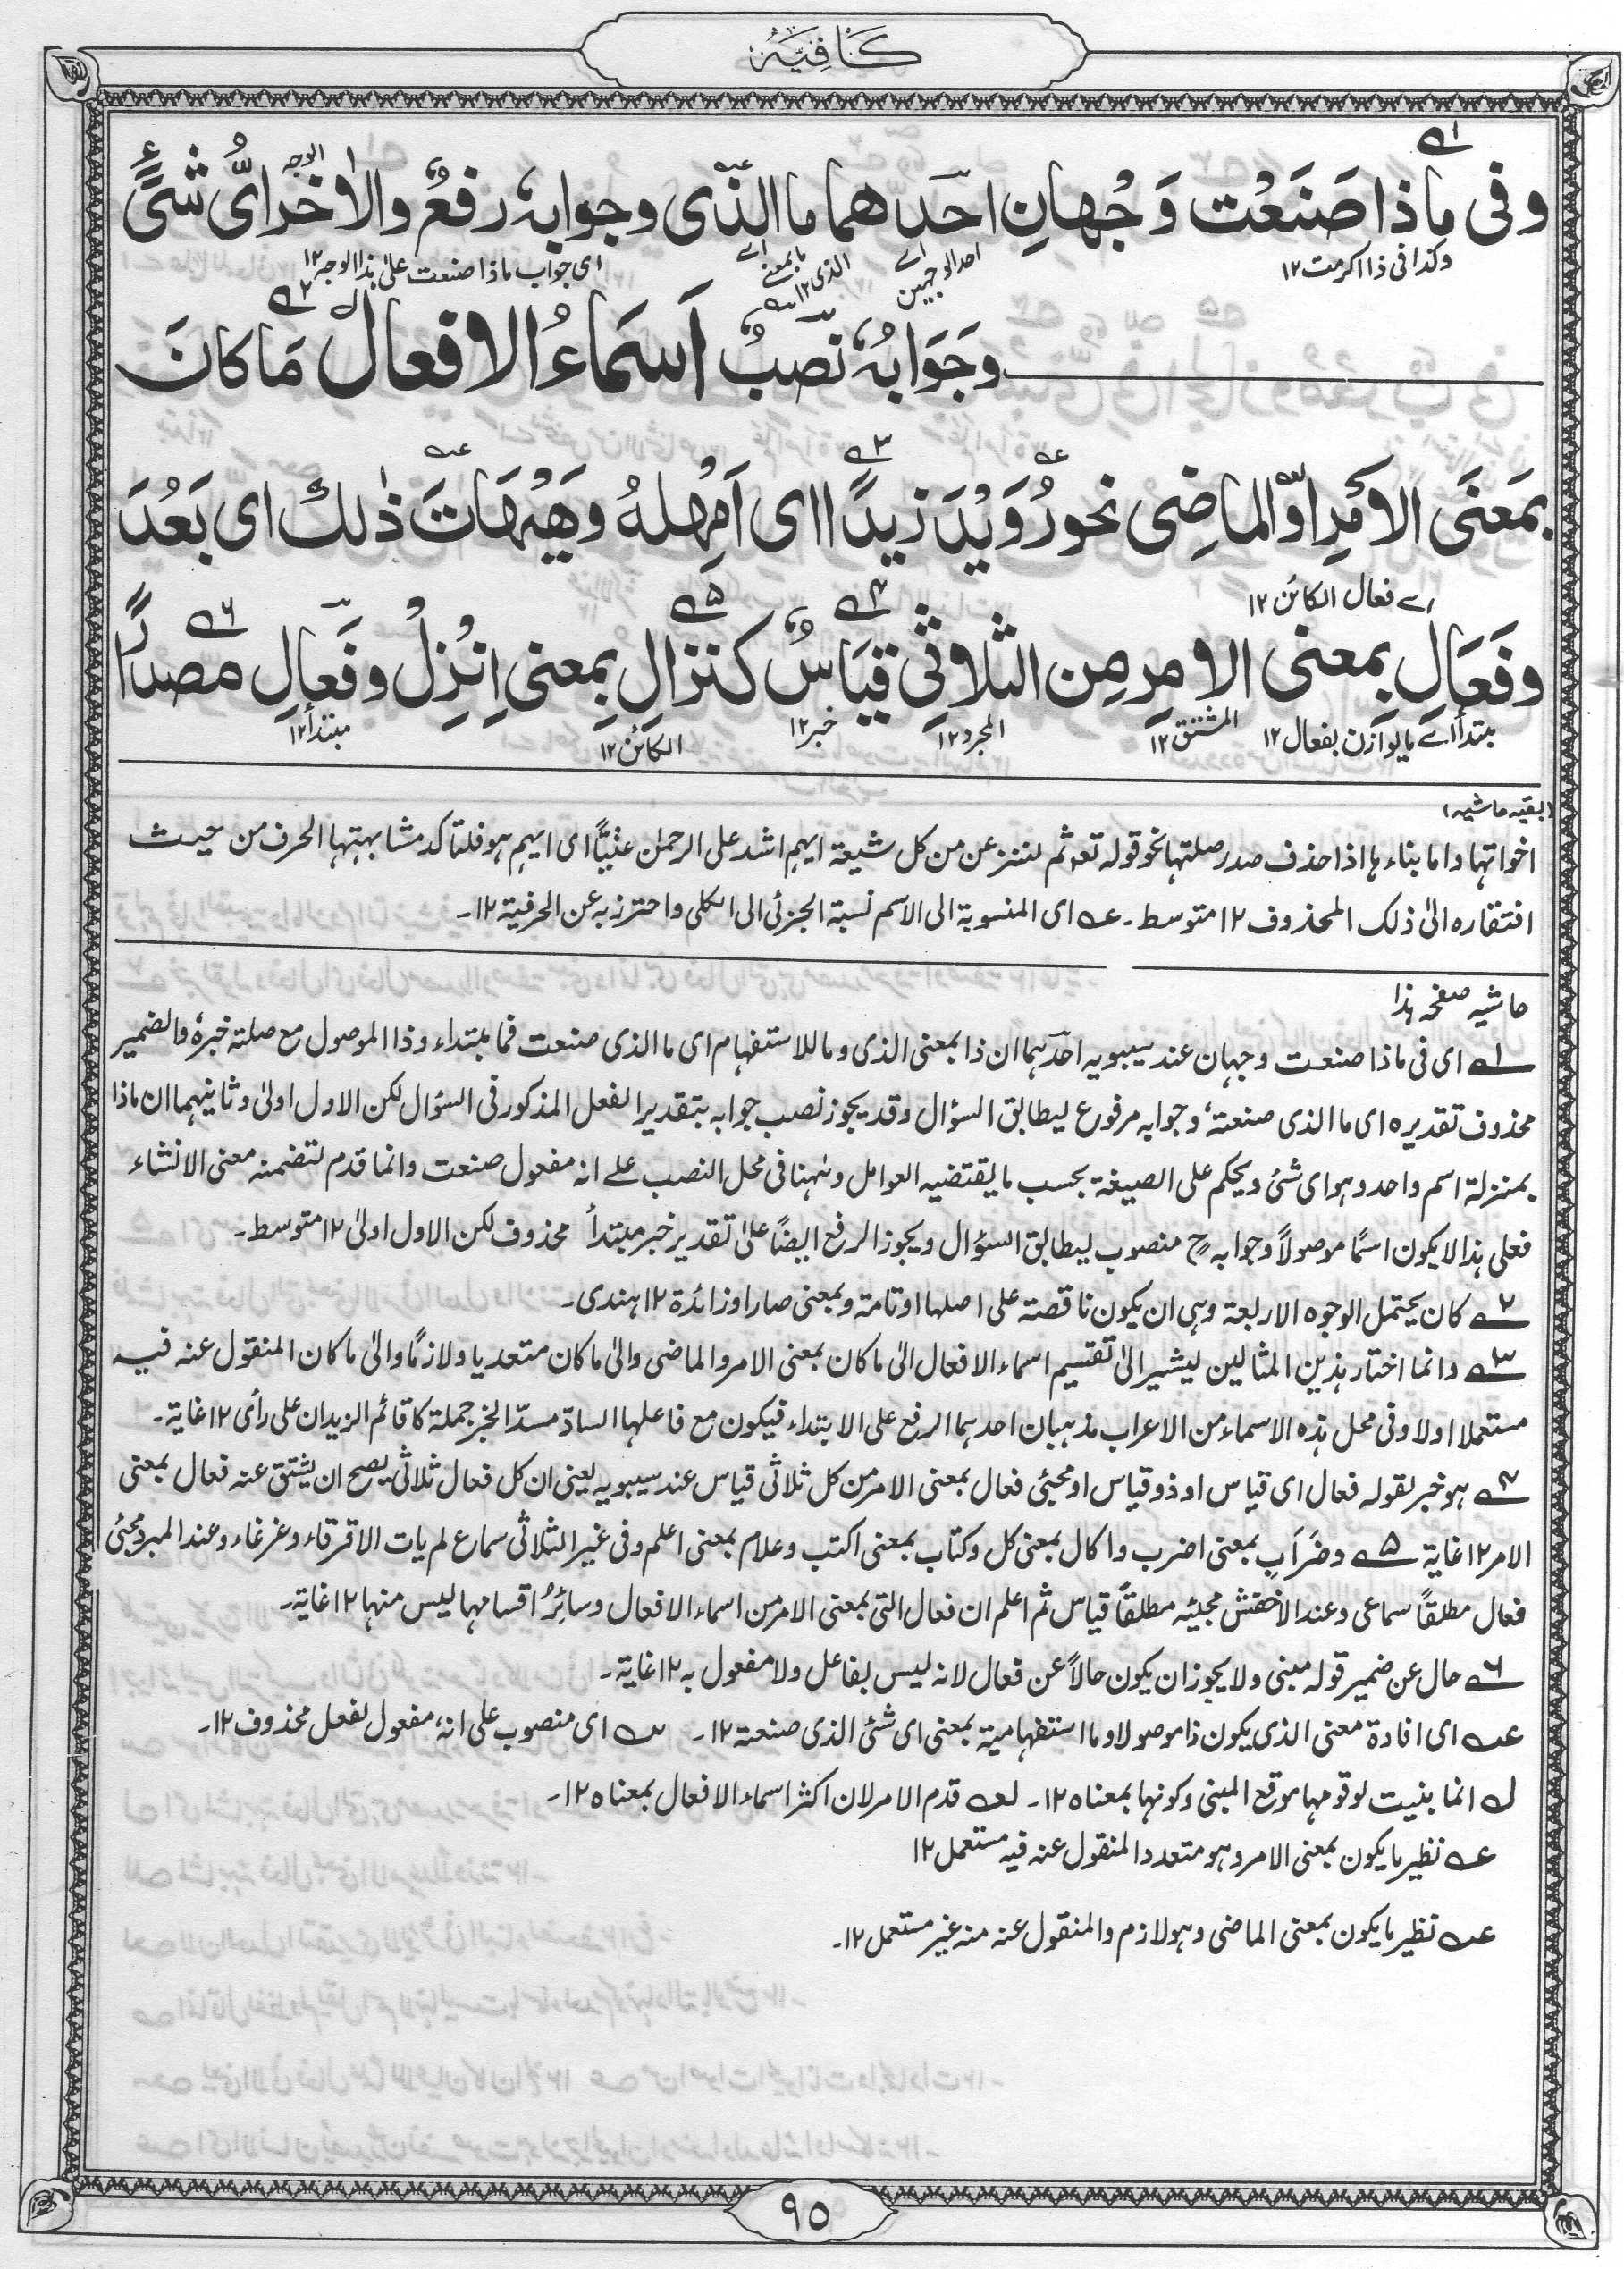 كَافِيَهْ
وفى ماذا صَنَعْت وَجْهانِ احَدهما ما الذى وجوابهٗ رفعٌ والاٰخر اىُّ شئٍ
وكذا فى ذا اكرمت ١٢ اے احد الوجهين ما بمعنے الذى ١٢ اى جواب ماذا صنعت علىٰ هذا الوجه ١٢ الوجه
وجَوَابهُٗ نصبٌ اَسمَاءُ الافعال مَا كانَ
بمَعنَى الاَمْرِ او الماضِى نحو رُوَيْدَ زيدًا اى اَمْهِلهُ وهَيْهَاتَ ذٰلك اى بَعُدَ
اے فعال الكائن ١٢
وفَعَالِ بمعنى الامرِ مِن الثلاثى قيَاسٌ كنزالِ بمعنى اِنْزِلْ وفَعالِ مصدرًا
مبتدأ اے ما يوازن بفعال ١٢ المشتق ١٢ المجرد ١٢ خبر ١٢ الكائن ١٢ مبتدأ ١٢
(بقيه حاشيه)
اخواتها واما بناءها اذا حذف صدر صلتها نحو قوله تعہ ثم لننزعن من كل شيعة ايهم اشد على الرحمٰن عتيًّا اى ايهم هو فلتاكد مشابهتها الحرف من حيث
افتقاره الىٰ ذلك المحذوف ١٢ متوسط۔ عہ اى المنسوبة الى الاسم نسبة الجزئى الى الكلى واحترز به عن الحرفية ١٢۔
حاشيه صفحه هذا
١ اى فى ماذا صنعت وجهان عند سيبويه احدهما ان ذا بمعنى الذى وما للاستفهام اى ما الذى صنعت فما مبتداء وذا الموصول مع صلته خبرهٗ والضمير
محذوف تقديره اى ما الذى صنعتهٗ وجوابه مرفوع ليطابق السؤال وقد يجوز نصب جوابه بتقدير الفعل المذكور فى السؤال لكن الاول اولىٰ وثانيهما ان ماذا
بمنزلة اسم واحد وهو اى شئ ويحكم على الصيغة بحسب ما يقتضيه العوامل وههنا فى محل النصب علے انه مفعول صنعت وانما قدم لتضمنه معنى الانشاء
فعلى هذا لا يكون اسمًا موصولاً وجوابه ح منصوب ليطابق السؤال ويجوز الرفع ايضًا علىٰ تقدير خبر مبتدأ محذوف لكن الاول اولىٰ ١٢ متوسط۔
٢ كان يحتمل الوجوه الاربعة وهى ان يكون ناقصة على اصلها او تامة وبمعنى صار او زائدة ١٢ هندى۔
٣ وانما اختار هذين المثالين ليشير الىٰ تقسيم اسماء الافعال الىٰ ما كان بمعنى الامر والماضى والىٰ ما كان متعديا ولازمًا والىٰ ما كان المنقول عنه فيه
مستعملا اولا وفى محل هذه الاسماء من الاعراب مذهبان احدهما الرفع على الابتداء فيكون مع فاعلها السادّ مسدّ الخبر جملة كاقائم الزيدان على رأى ١٢ غاية۔
٤ هو خبر لقوله فعال اى قياس او ذو قياس او مجئى فعال بمعنى الامر من كل ثلاثى قياس عند سيبويه يعنى ان كل فعال ثلاثى يصح ان يشتق عنه فعال بمعنى
الامر ١٢ غاية ٥ وضَرَابِ بمعنى اضرب واكال بمعنى كل وكتاب بمعنى اكتب وعلام بمعنى اعلم وفى غير الثلاثى سماع لم يات الا قرقاء وعرعاء وعند المبرد مجئى
فعال مطلقًا سماعى وعند الاخفش مجيئه مطلقًا قياس ثم اعلم ان فعال التى بمعنى الامر من اسماء الافعال وسائرُ اقسامها ليس منها ١٢ غاية۔
٦ حال عن ضمير قوله مبنى ولا يجوز ان يكون حالاً عن فعال لانه ليس بفاعل ولا مفعول به ١٢ غاية۔
عہ اى افادة معنى الذى يكون ذا موصولا وما استفهامية بمعنى اى شئ الذى صنعته ١٢۔ سہ اى منصوب على انهٗ مفعول لفعل محذوف ١٢۔
ل انما بنيت لوقوعها موقع المبنى وكونها بمعناه ١٢۔ لعہ قدم الامر لان اكثر اسماء الافعال بمعناه ١٢۔
عہ نظير ما يكون بمعنى الامر وهو متعد والمنقول عنه فيه مستعمل ١٢
عہ نظير ما يكون بمعنى الماضى وهو لازم والمنقول عنه منه غير مستعمل ١٢۔
٩٥